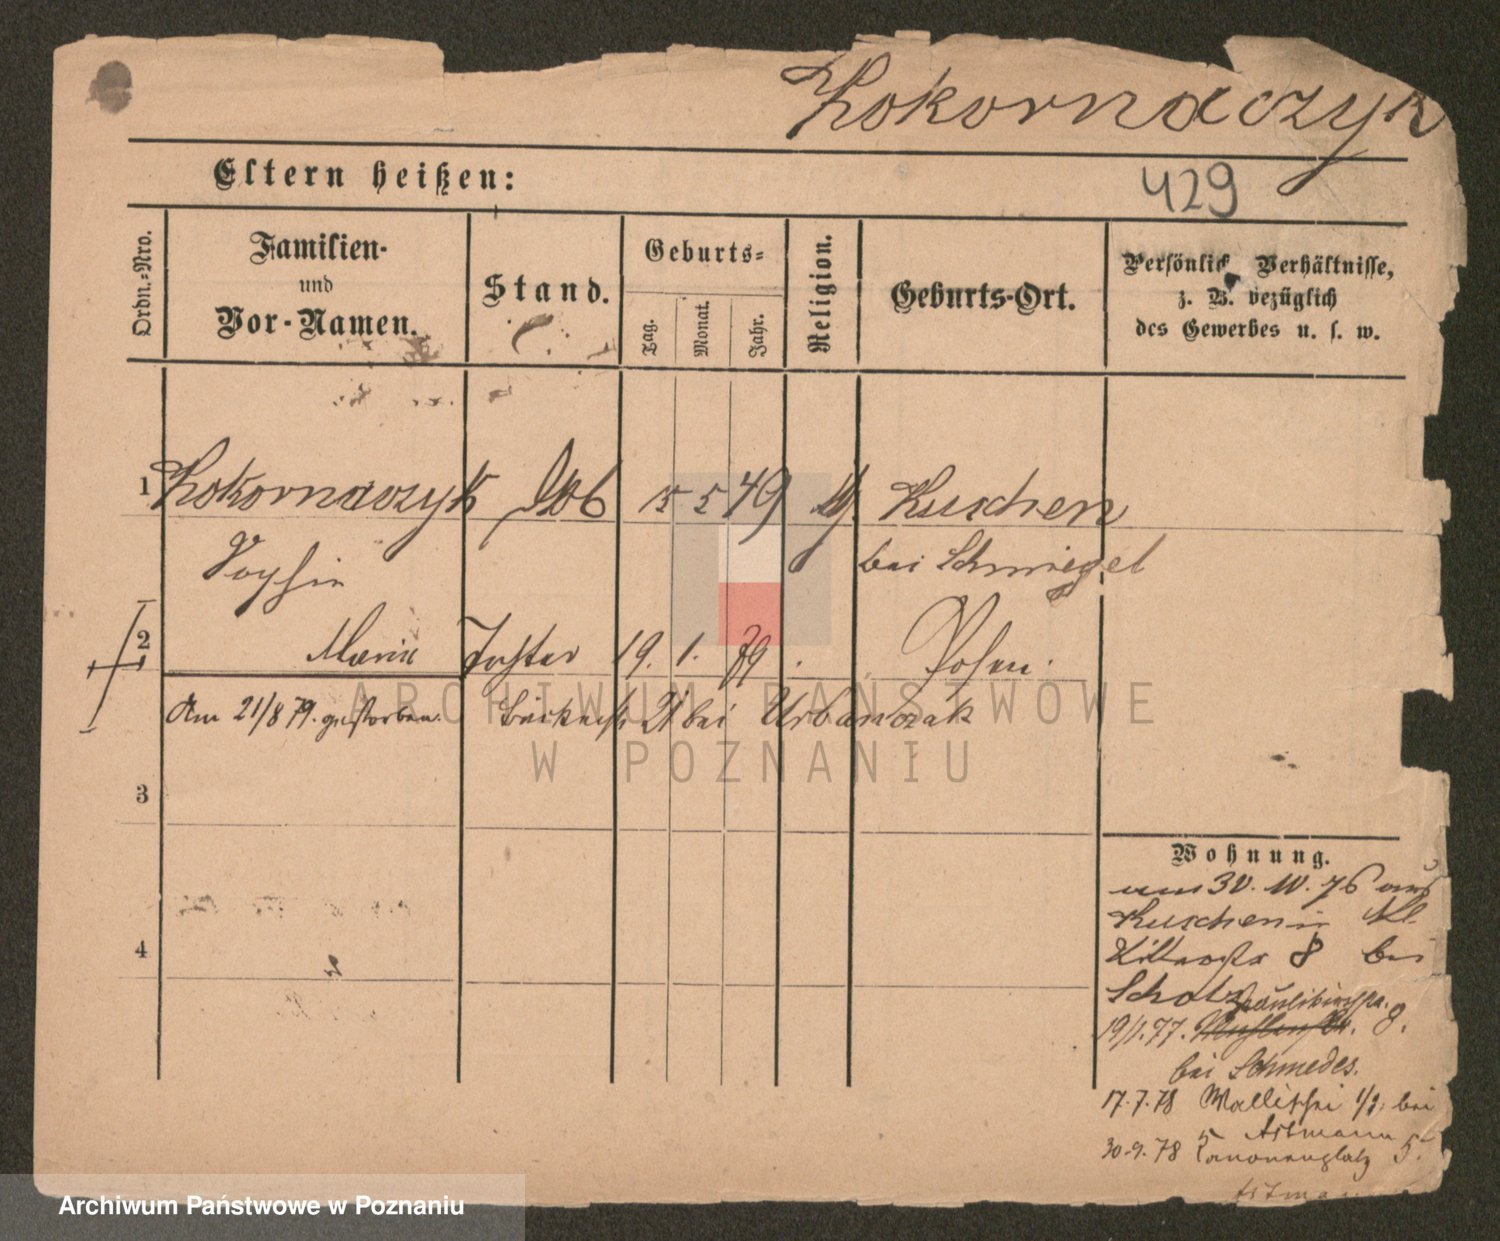 Kokornaczyk
429
Eltern heißen:
Ordn.-Nro.
Familien-
und
Vor-Namen.
Stand.
Geburts-
Tag.
Monat.
Jahr.
Religion.
Geburts-Ort.
Persönlich Verhältnisse,
z. B. bezüglich
des Gewerbes u. s. w.
1 Kokornaczyk 15 5 49 Kuschen
bei Schmiegel
2 Marie Tochter 19. 1. 79. Posen.
Am 21/8 79. gestorben. 21 bei Urbanczak
3
4
Wohnung.
am 30. 10. 76 aus
Kuschen in Kl.
Ritterstr 8 bei
Scholz Paulikirchstr.
19/1.77. 8.
bei Schmedes.
17.7.78 Wallischei 1/2 bei
Artmann
30.9.78 Kanonenplatz 5.
Artmann
ARCHIWUM PAŃSTWOWE
W POZNANIU
Archiwum Państwowe w Poznaniu